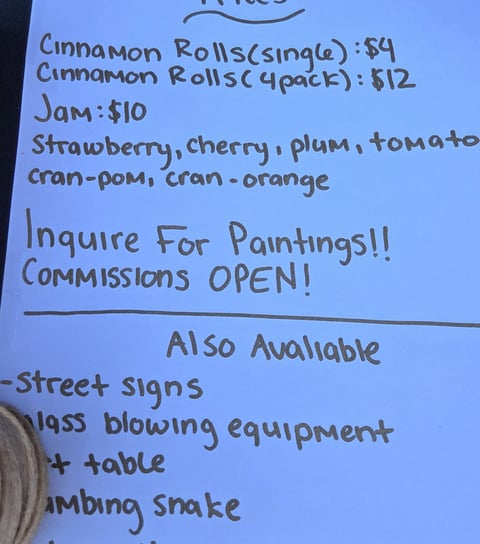 Cinnamon Rolls(single):$4
Cinnamon Rolls(4pack):$12
Jam:$10
Strawberry, cherry, plum, tomato
cran-pom, cran-orange
Inquire For Paintings!!
Commissions OPEN!
Also Avaliable
-street signs
blowing equipment
table
snake